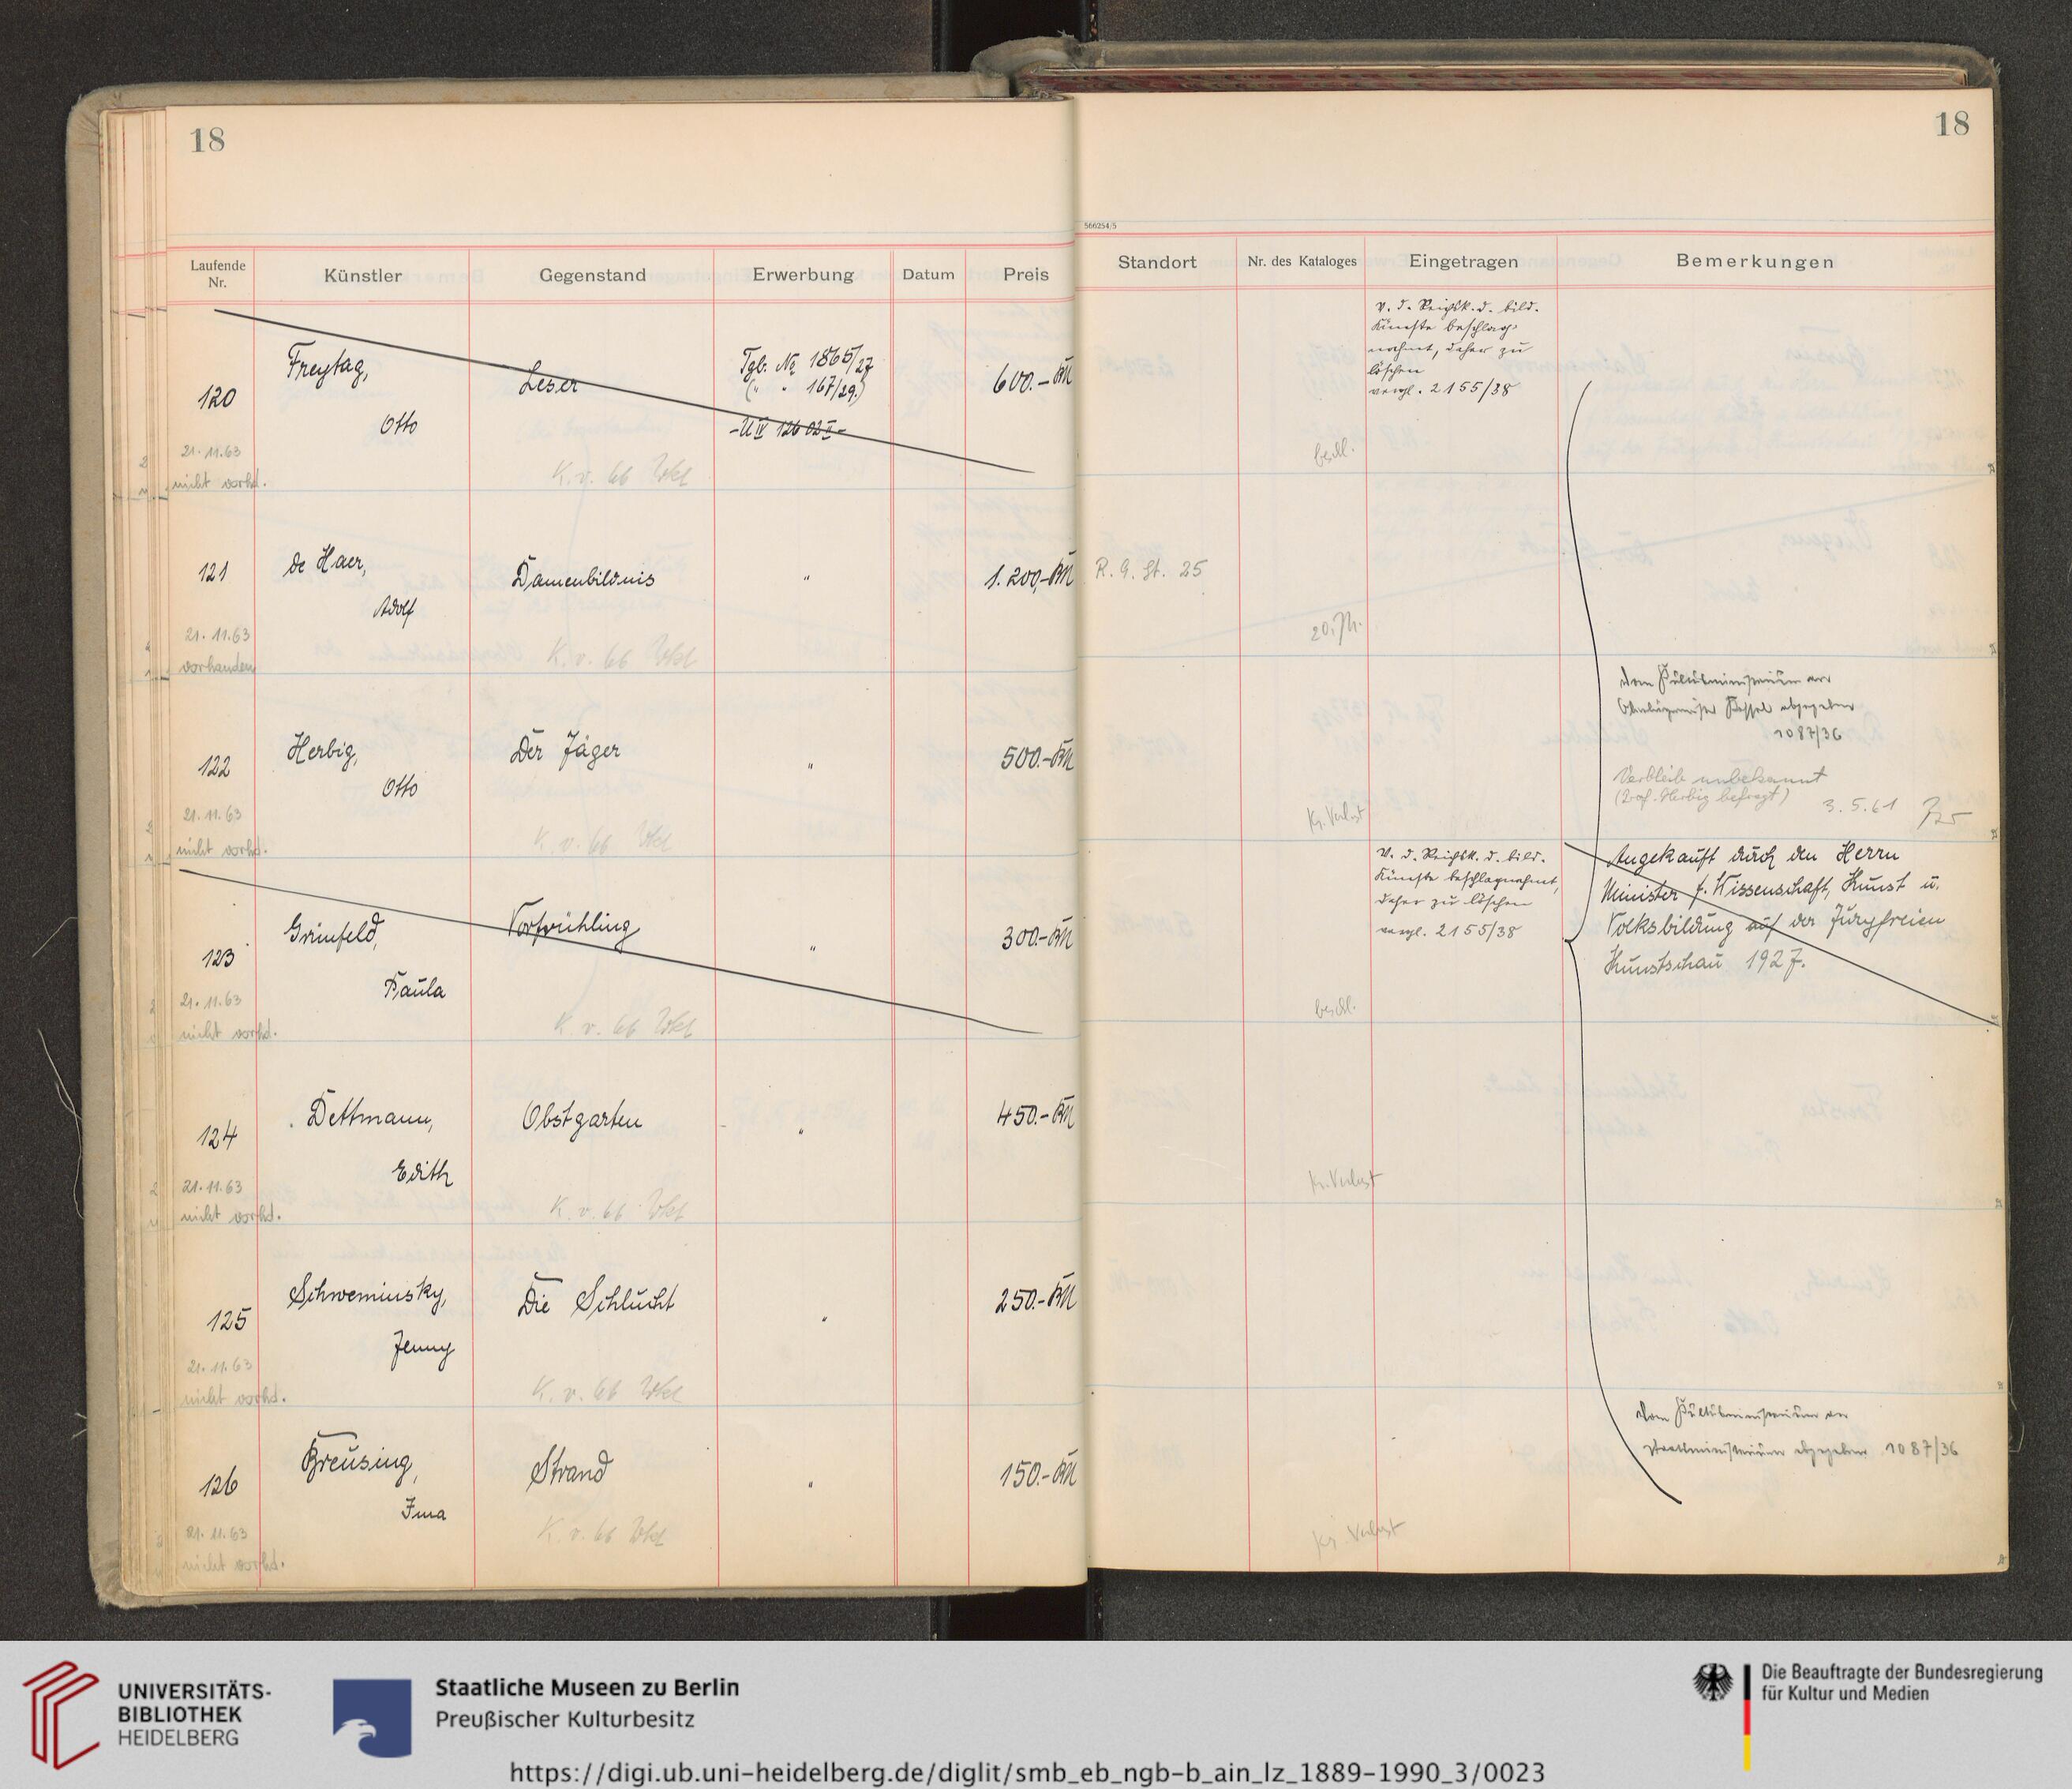 18
18
566254/5
Laufende Nr. Künstler Gegenstand Erwerbung Datum Preis
Standort Nr. des Kataloges Eingetragen Bemerkungen
120 Freytag, Otto
Leser
Tgb. No 1865/27
(" " 167/29.)
-U IV 126 02 II-
600.- RM
v. d. Reichsk. d. bild.
Künste beschlag-
nahmt, daher zu
löschen
vergl. 2155/38
21.11.63
nicht vorhd.
K. v. 66
beschl.
121 de Haer, Adolf
Damenbildnis
"
1.200,- RM
R. G. St. 25
21.11.63
vorhanden
K. v. 66
122 Herbig, Otto
Der Jäger
"
500.- RM
dem Kultusministerium
abgegeben
1087/36
Verbleib unbekannt
(Prof. Herbig befragt)
3.5.61
21.11.63
nicht vorhd.
K. v. 66
Kr. Verlust
123 Grünfeld, Paula
Vorfrühling
"
300.- RM
V. d. Reichsk. d. bild.
Künste beschlagnahmt,
daher zu löschen
vergl. 2155/38
Angekauft durch den Herrn
Minister f. Wissenschaft, Kunst u.
Volksbildung auf der Juryfreien
Kunstschau 1927.
21.11.63
nicht vorhd.
K. v. 66
beschl.
124 Dettmann, Edith
Obstgarten
"
450.- RM
21.11.63
nicht vorhd.
K. v. 66
Kr. Verlust
125 Schweminsky, Jenny
Die Schlucht
"
250.- RM
21.11.63
nicht vorhd.
K. v. 66
126 Breusing, Ima
Strand
"
150.- RM
dem Kultusministerium
abgegeben 1087/36
21.11.63
nicht vorhd.
K. v. 66
Kr. Verlust
UNIVERSITÄTS-
BIBLIOTHEK
HEIDELBERG
Staatliche Museen zu Berlin
Preußischer Kulturbesitz
Die Beauftragte der Bundesregierung
für Kultur und Medien
https://digi.ub.uni-heidelberg.de/diglit/smb_eb_ngb-b_ain_lz_1889-1990_3/0023